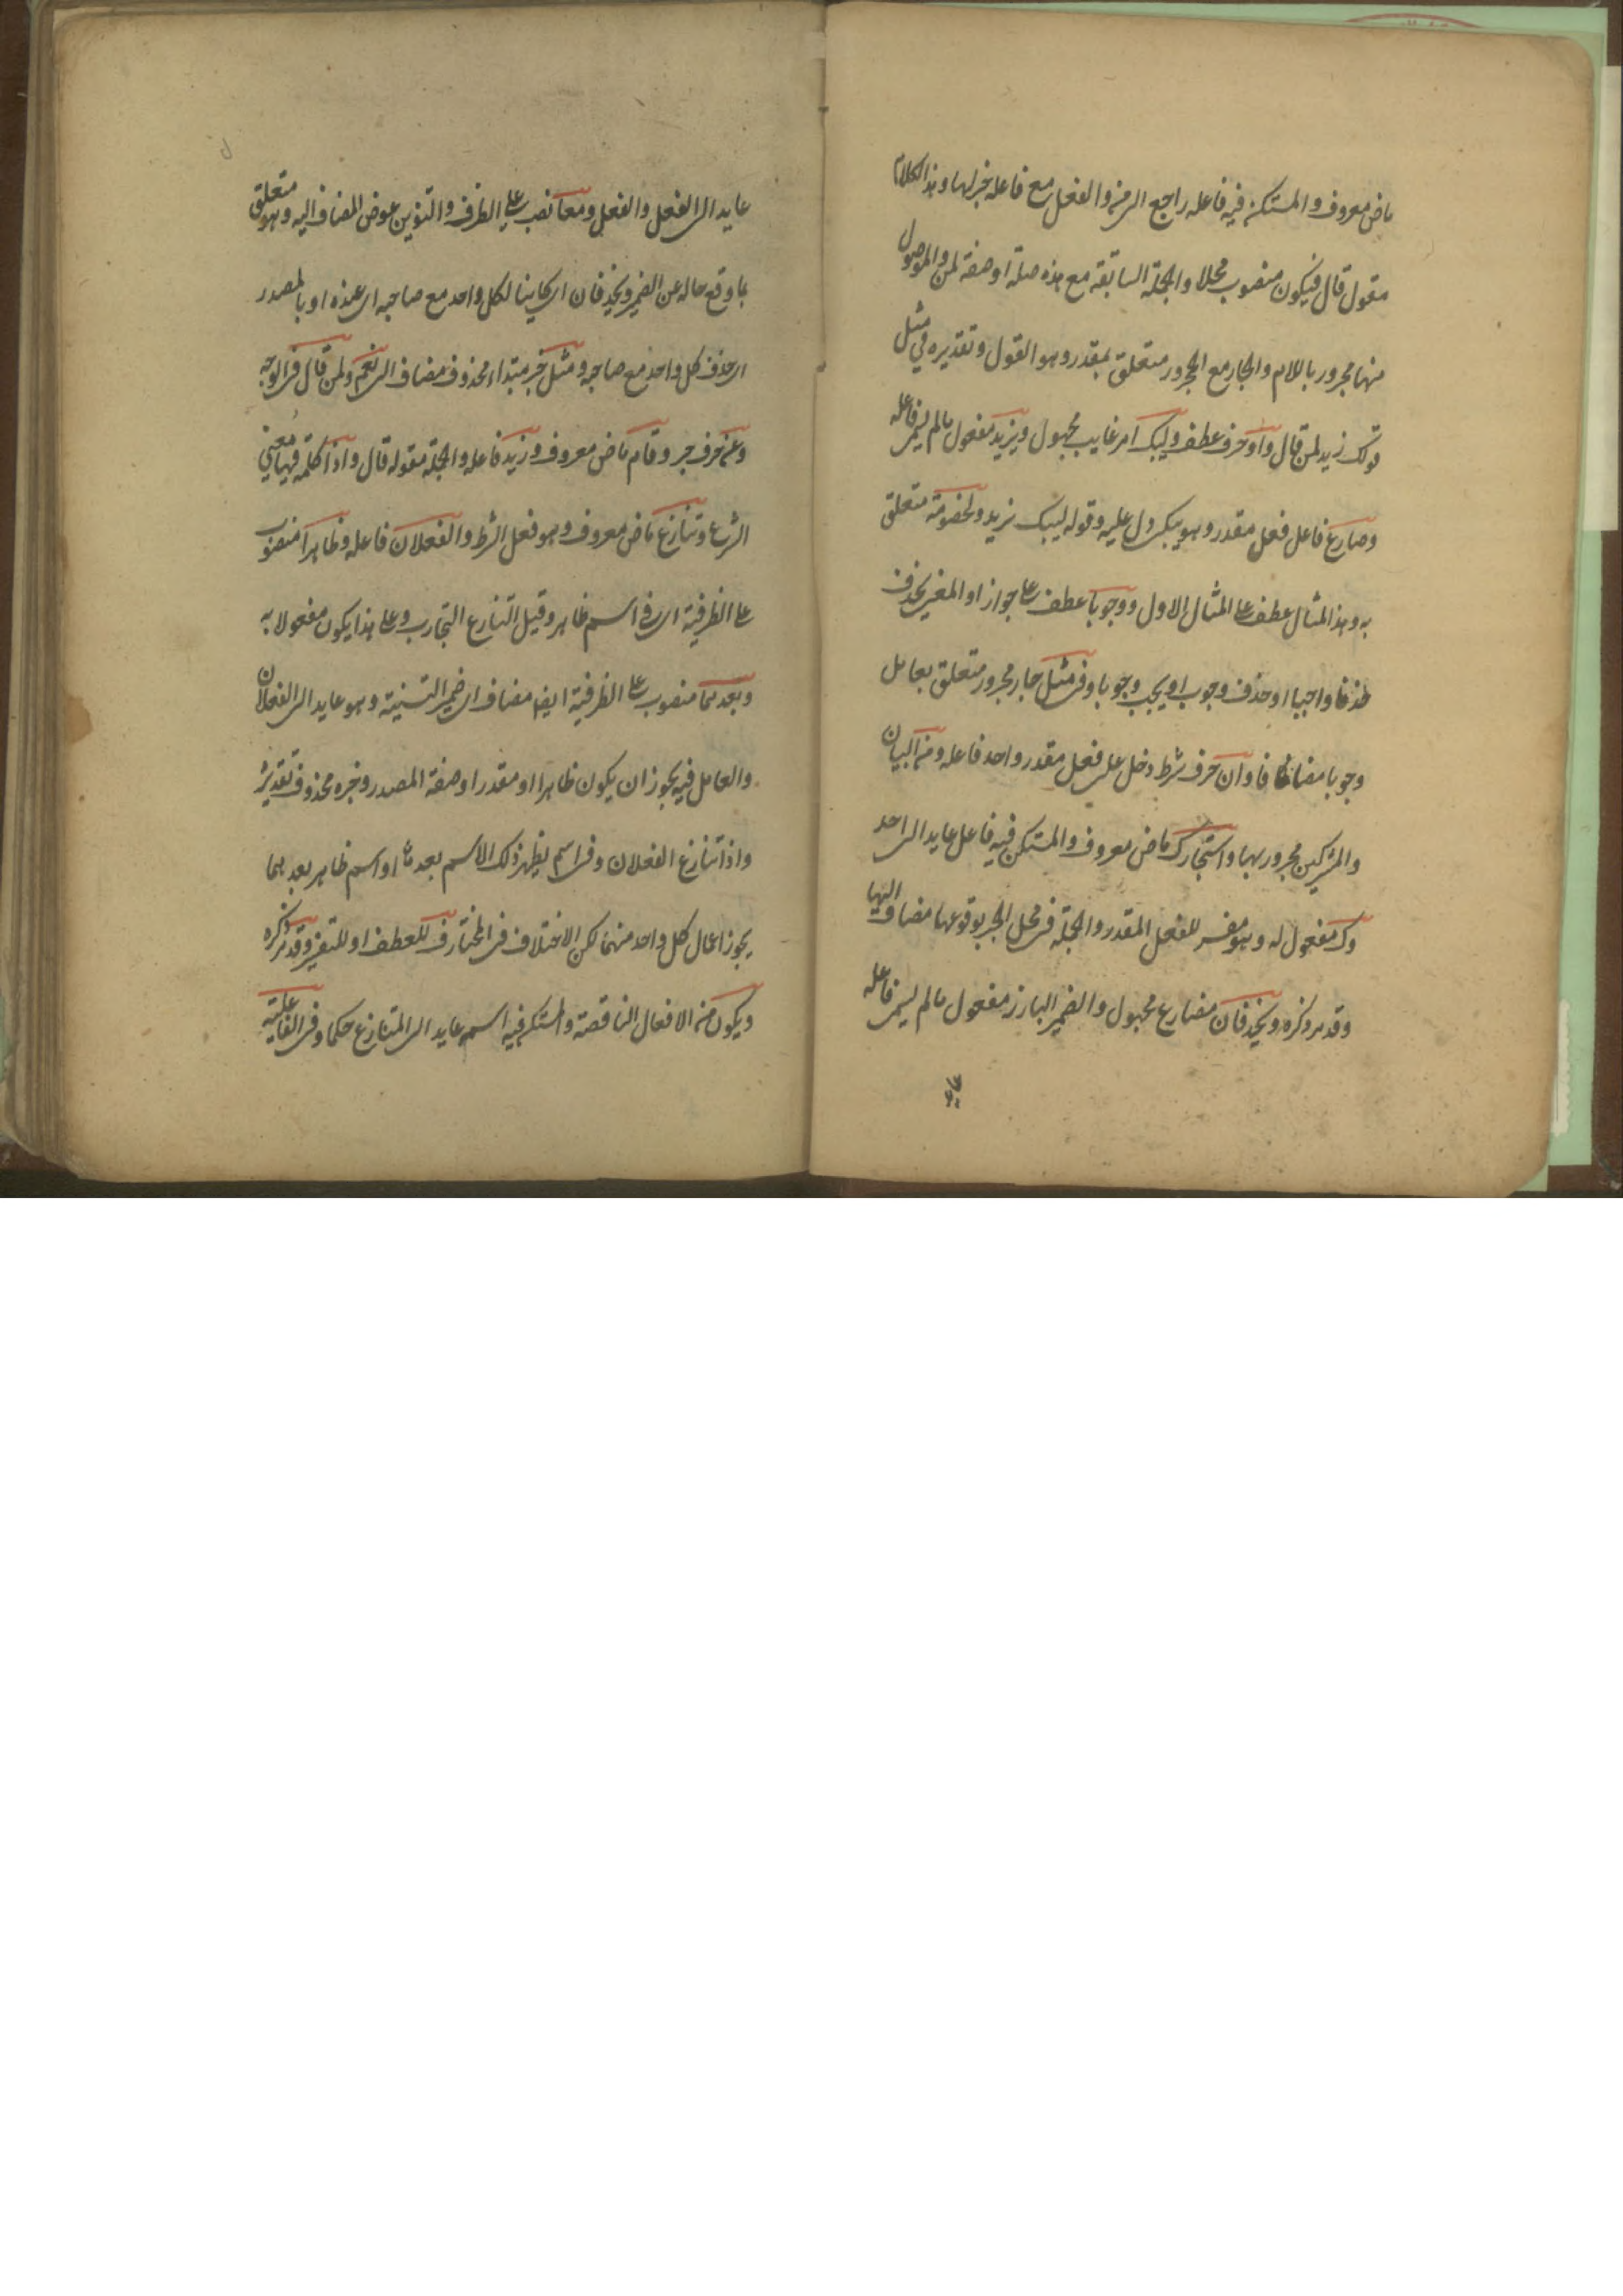 ماض معروف والمستكن فيه فاعله راجع الى من والفعل مع فاعله خبر لها وهذا الكلام
مقول قال فيكون منصوب محلا والجملة السابقة مع هذه صلة او صفة لمن والموصول
منها مجرور باللام والجار مع المجرور متعلق بمقدر وهو القول وتقديره في مثل
قولك زيد لمن قال واو حرف عطف وليبك امر غايب مجهول ويزيد مفعول مالم يسم فاعله
وضارع فاعل فعل مقدر وهو يبكى دل عليه وقوله ليبك يزيد ولخصومة متعلق
به وهذا المثال عطف على المثال الاول ووجوبا عطف على جوازا والمعنى يحذف
حذفا واجبا او حذف وجوب او يجب وجوبا وفى مثل جار مجرور متعلق بعامل
وجوبا مضافا وان حرف شرط دخل على فعل مقدر واحد فاعله ومن البيان
والمشركين مجرور بها واستجارك ماض معروف والمستكن فيه فاعل عايد الى احد
وك مفعول له وهو مفسر للفعل المقدر والجملة فى محل الجر بوقوعها مضاف اليها
وقد مر ذكره ويحذفان مضارع مجهول والضمير البارز مفعول مالم يسم فاعله
عايد الى الفعل والفعل ومعا نصب على الظرف والتنوين عوض المضاف اليه وهو متعلق
بما وقع حاله عن الضمير ويحذفان اى كاينا لكل واحد مع صاحبه اى عنده او بالمصدر
اى حذف كل واحد مع صاحبه ومثل خبر مبتداء محذوف مضاف الى نعم ولمن قال فى الوجه
وعن حرف جر وقام ماض معروف وزيد فاعله والجملة مقوله قال واذا كلمة فيها معنى
الشرط وتنازع ماض معروف وهو فعل الشرط والفعلان فاعله وظاهرا منصوب
على الظرفية اى فى اسم ظاهر وقيل التنازع التجارب وعلى هذا يكون مفعولا به
وبعدهما منصوب على الظرفية ايض مضاف الى ضمير التثنية وهو عايد الى الفعلان
والعامل فيه يجوز ان يكون ظاهرا او مقدرا وصفة المصدر وخبره محذوف تقديره
واذا تنازع الفعلان وفى اسم يظهر ذلك الاسم بعدهما او اسم ظاهر بعدهما
يجوز اعمال كل واحد منهما لكن الاختلاف فى المختار ف للعطف او للتفسير وقد مر ذكره
ويكون من الافعال الناقصة والمستكن فيه اسمه عايد الى المتنازع حكما وفى الفاعلية